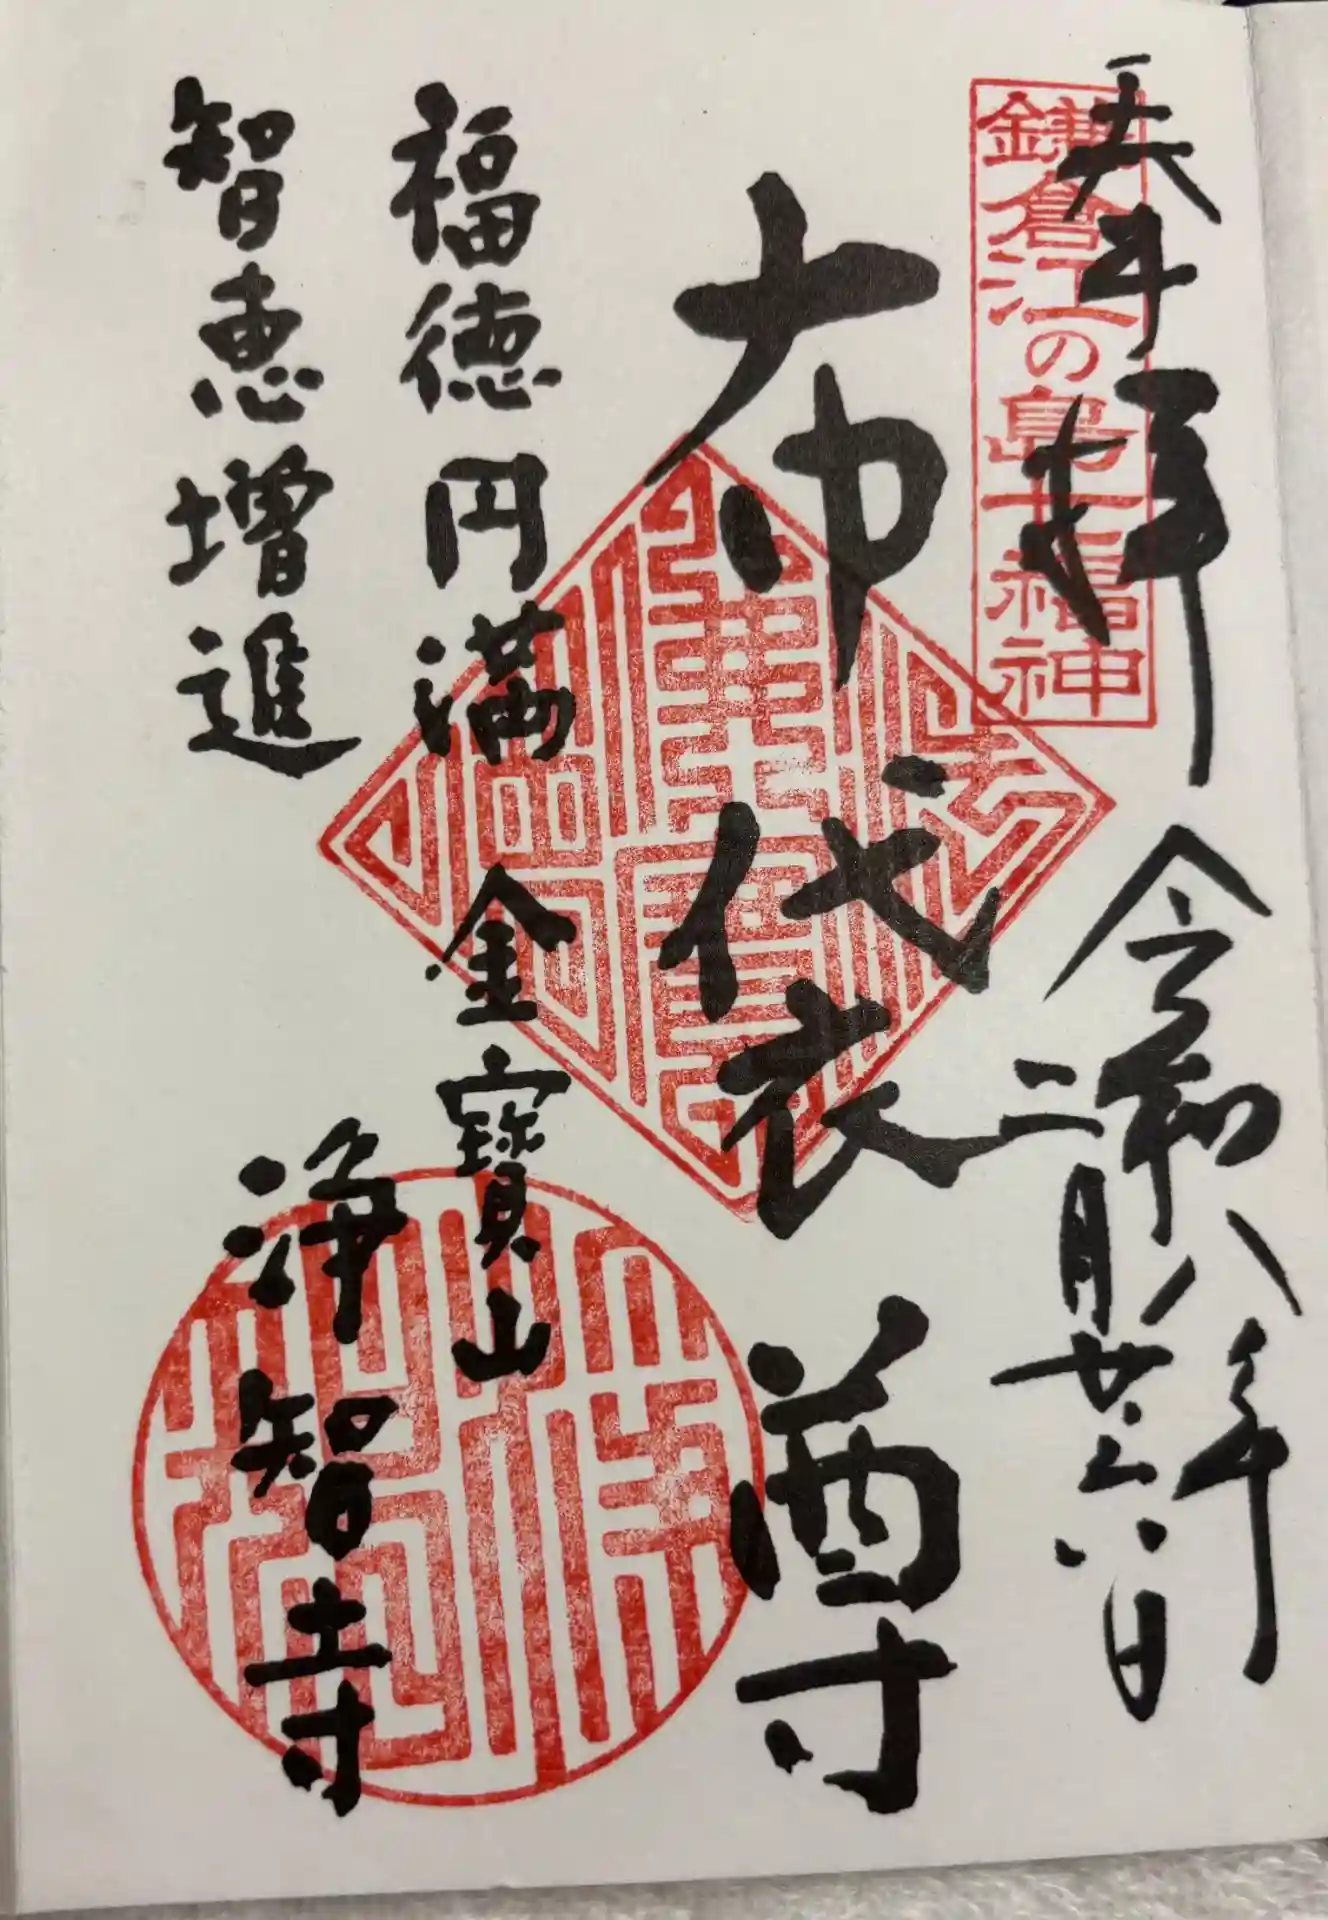 奉拝
鎌倉江の島七福神
令和八年
二月廿六日
布袋尊
福徳円満
智恵増進
金寶山
浄智寺